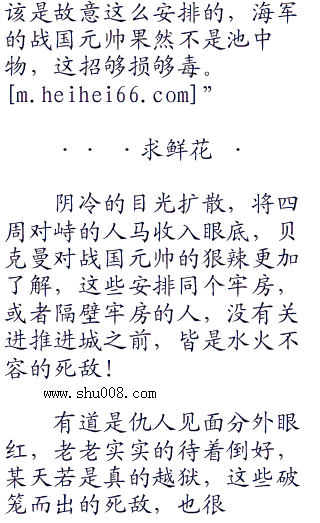 该是故意这么安排的，海军
的战国元帅果然不是池中
物，这招够损够毒。
[m.heihei66.com]”
· · ·求鲜花 ·
阴冷的目光扩散，将四
周对峙的人马收入眼底，贝
克曼对战国元帅的狠辣更加
了解，这些安排同个牢房，
或者隔壁牢房的人，没有关
进推进城之前，皆是水火不
容的死敌！
www.shu008.com
有道是仇人见面分外眼
红，老老实实的待着倒好，
某天若是真的越狱，这些破
笼而出的死敌，也很